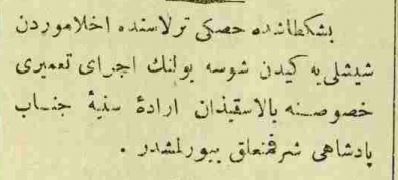 بشكطاشده خصكی ترلاسنده اخلاموردن
شیشلی‌یه كیدن شوسه یولنك اجرای تعمیری
خصوصنه بالاستیذان ارادهٔ سنیهٔ جناب
پادشاهی شرفمتعلق بیورلمشدر .